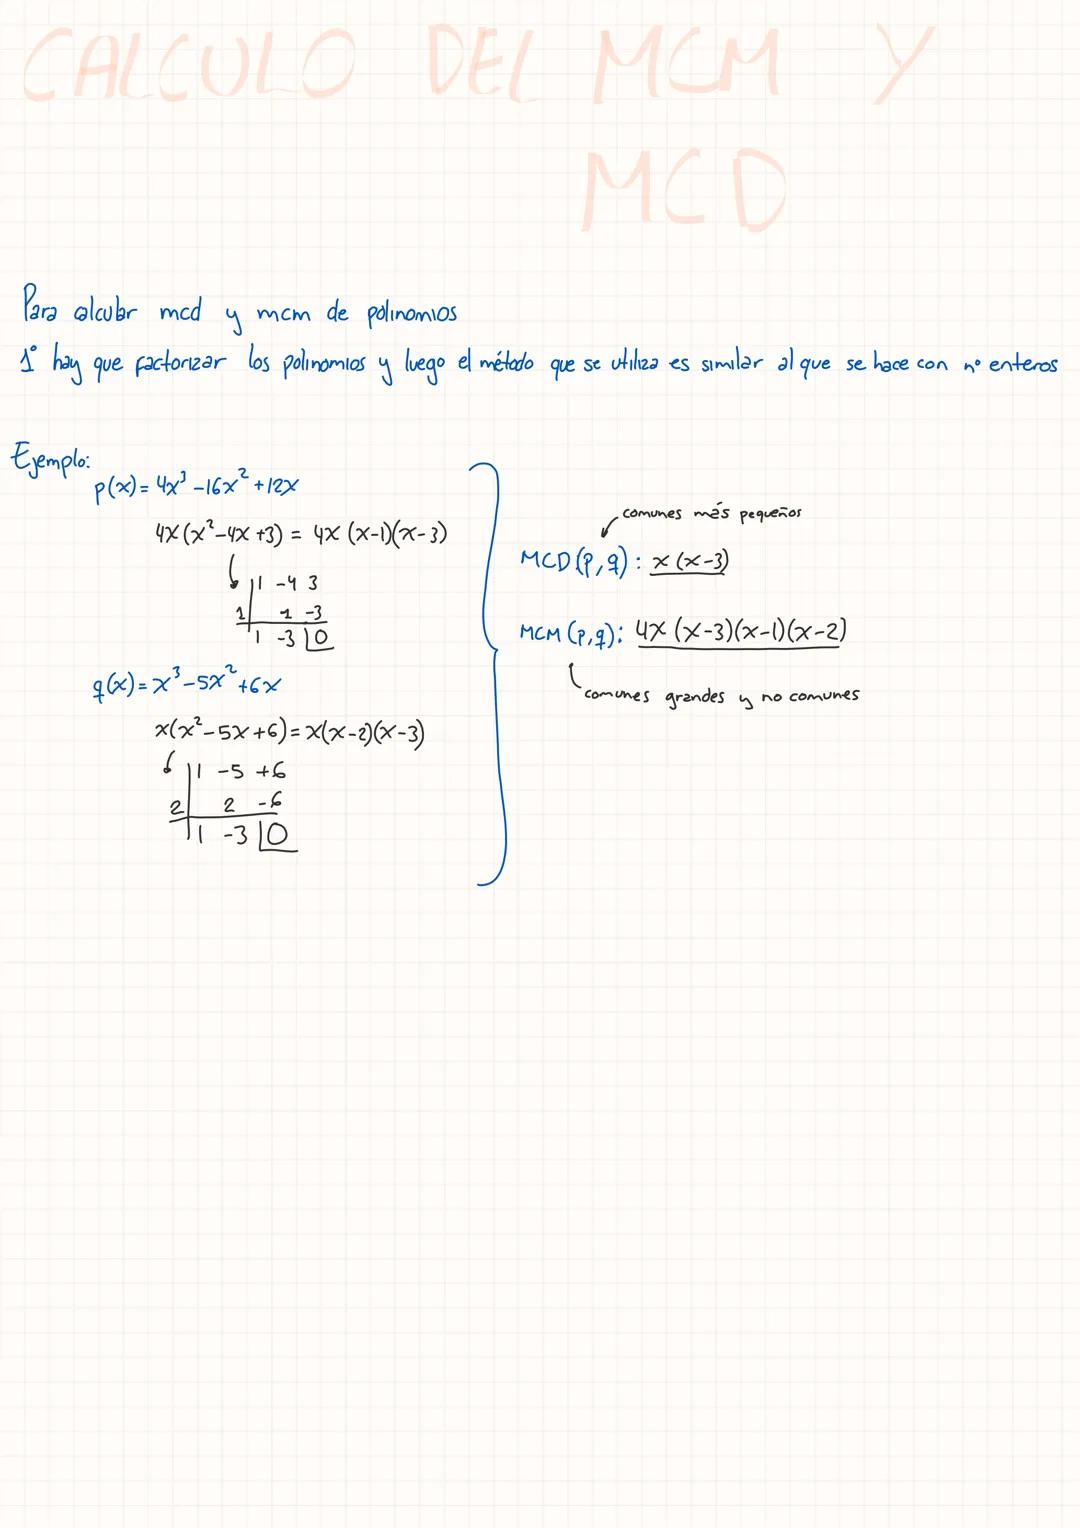 CALCULO DEL MCM Y
MCD
Para calcular mcd y mcm de polinomios
1° hay que factorizar los polinomios y luego el método que se utiliza es similar al que se hace con n° enteros
Ejemplo:
p(x) = 4x³ - 16x² + 12x
4x(x² - 4x + 3) = 4x (x-1)(x-3)
1 -4 3
1 1 -3
1 -3 0
q(x) = x³ - 5x² + 6x
x(x² - 5x + 6) = x(x-2)(x-3)
1 -5 +6
2 2 -6
1 -3 0
comunes más pequeños
MCD (p,q) : x (x-3)
MCM (p,q): 4x (x-3)(x-1)(x-2)
comunes grandes y no comunes